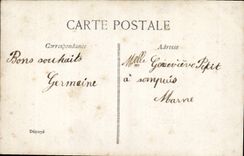 CARTE POSTALE
Correspondance
Adresse
Bons souhaits
Germaine
Melle Geneviève Petit
à Sompuis
Marne
Déposé